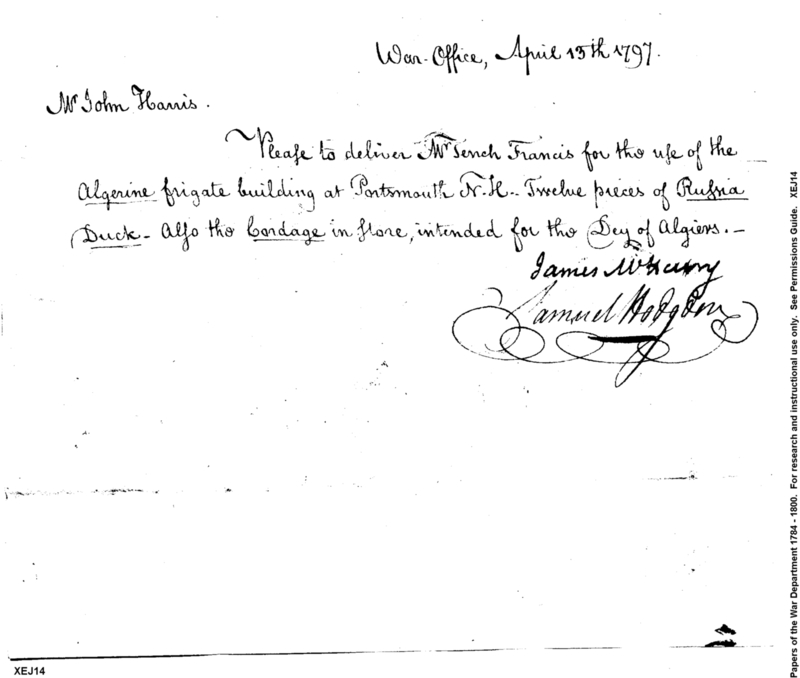 War-Office, April 13th 1797.
Mr John Harris.
Please to deliver Mr Tench Francis for the use of the
Algerine frigate building at Portsmouth N.H.- Twelve pieces of Russia
Duck- Also the Cordage in store, intended for the Dey of Algiers.-
James McHenry
Samuel Hodgdon
XEJ14
Papers of the War Department 1784 - 1800. For research and instructional use only. See Permissions Guide. XEJ14